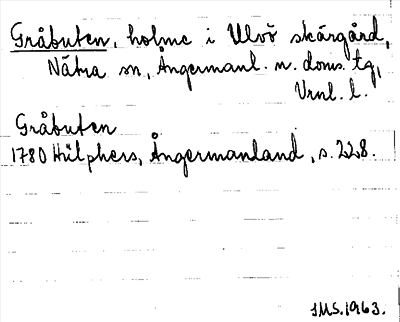 Gråbuten, holme i Ulvö skärgård,
Nätra sn, Ångermanl. n. doms. tg,
Vrnl. l.
Gråbuten
1780 Hülphers, Ångermanland, s. 228.
JMS. 1963.